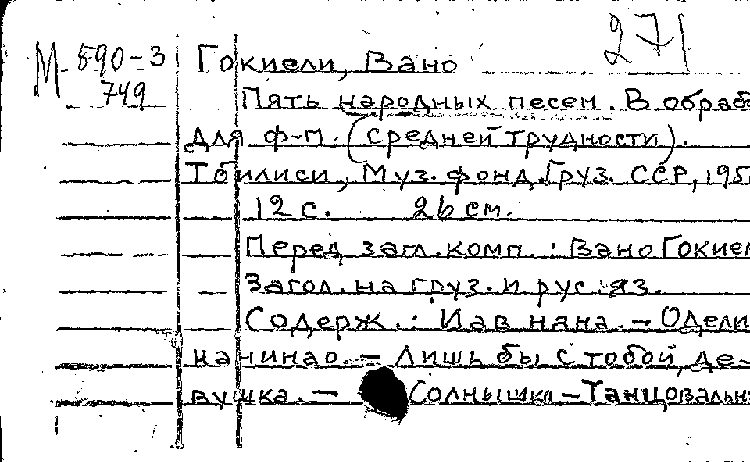 271
М 590-3
749
Гокиели, Вано
Пять народных песен. В обраб
для ф-п. (средней трудности).
Тбилиси, Муз. фонд. Груз. ССР, 195
12 с. 26 см.
Перед загл. комп.: Вано Гокиел
Загол. на груз. и рус. яз.
Содерж.: Иав нана. – Одели
нанинао. – Лишь бы с тобой, де-
вушка. – Солнышко – Танцовальн